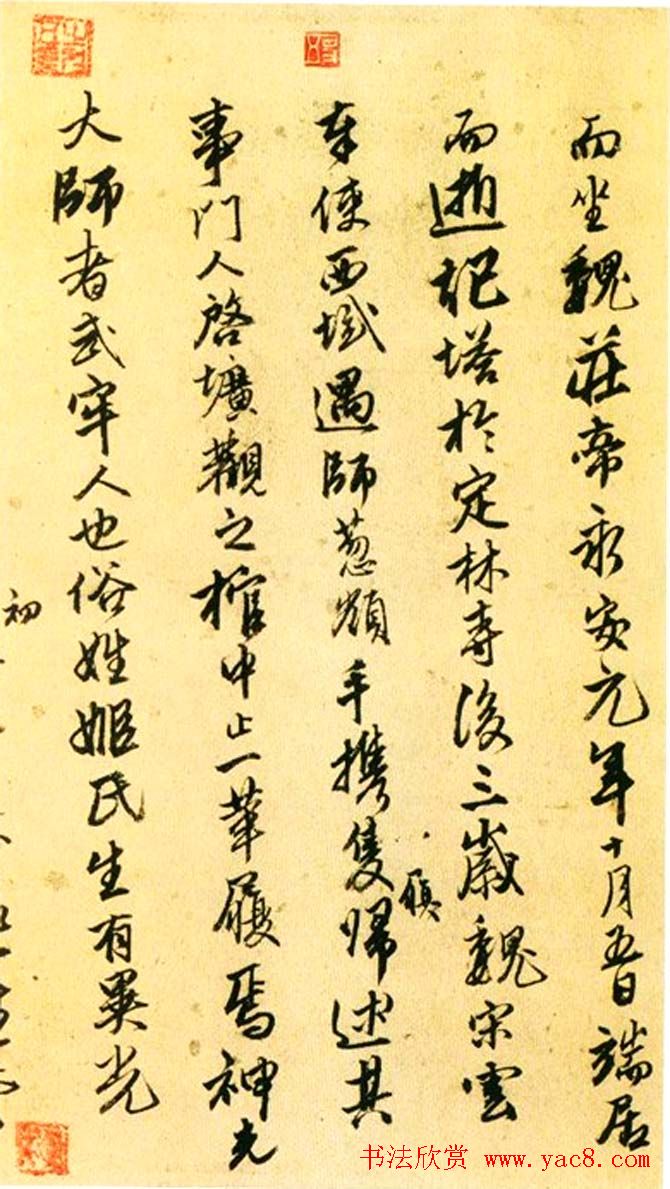 而坐魏莊帝永安元年十月五日端居
而逝起塔於定林寺後三歲魏宋雲
奉使西域遇師葱嶺手攜隻歸述其
履
事門人啓壙觀之棺中止一革履焉神光
大師者武牢人也俗姓姬氏生有異光
初
书法欣赏 www.yac8.com